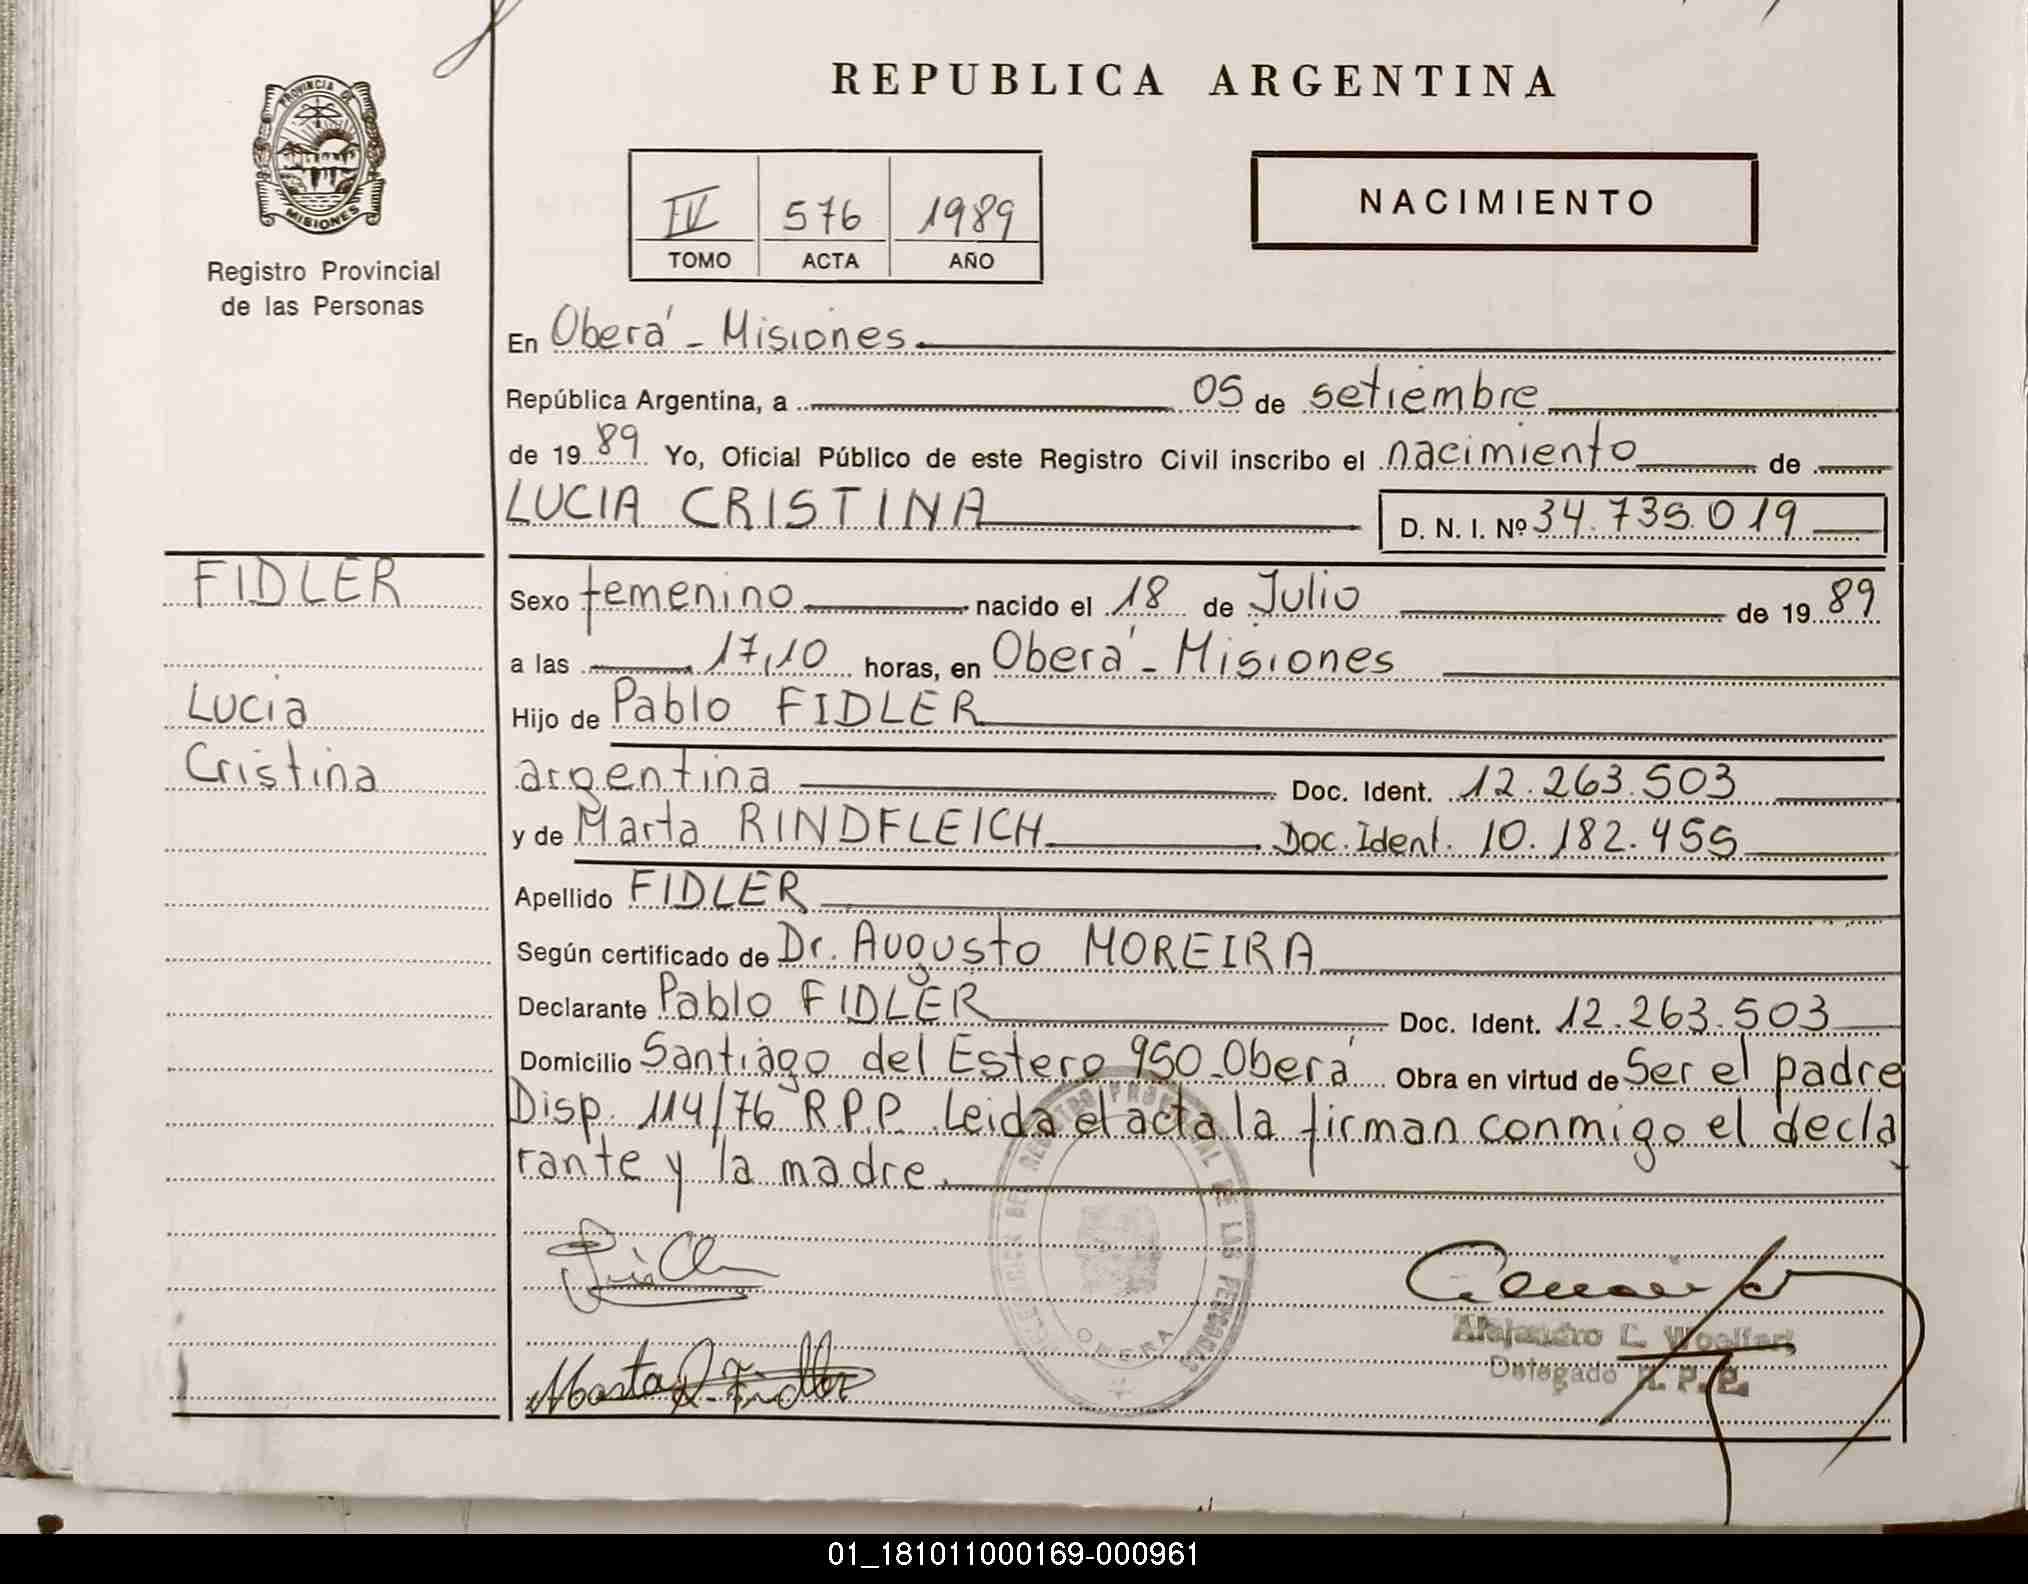 REPUBLICA ARGENTINA
PROVINCIA DE
MISIONES
Registro Provincial
de las Personas
NACIMIENTO
IV 576 1989
TOMO ACTA AÑO
En Oberá - Misiones
República Argentina, a 05 de setiembre
de 1989 Yo, Oficial Público de este Registro Civil inscribo el nacimiento de
LUCIA CRISTINA D. N. I. Nº 34.735.019
FIDLER
Lucia
Cristina
Sexo femenino nacido el 18 de Julio de 1989
a las 17,10 horas, en Oberá - Misiones
Hijo de Pablo FIDLER
argentina Doc. Ident. 12.263.503
y de Marta RINDFLEICH Doc. Ident. 10.182.455
Apellido FIDLER
Según certificado de Dr. Augusto MOREIRA
Declarante Pablo FIDLER Doc. Ident. 12.263.503
Domicilio Santiago del Estero 950 - Oberá Obra en virtud de Ser el padre
Disp. 114/76 R.P.P. Leida el acta la firman conmigo el decla
rante y la madre.
Marta R. Fidler
OBERA
Alejandro L.
Delegado R. P. P.
01_181011000169-000961